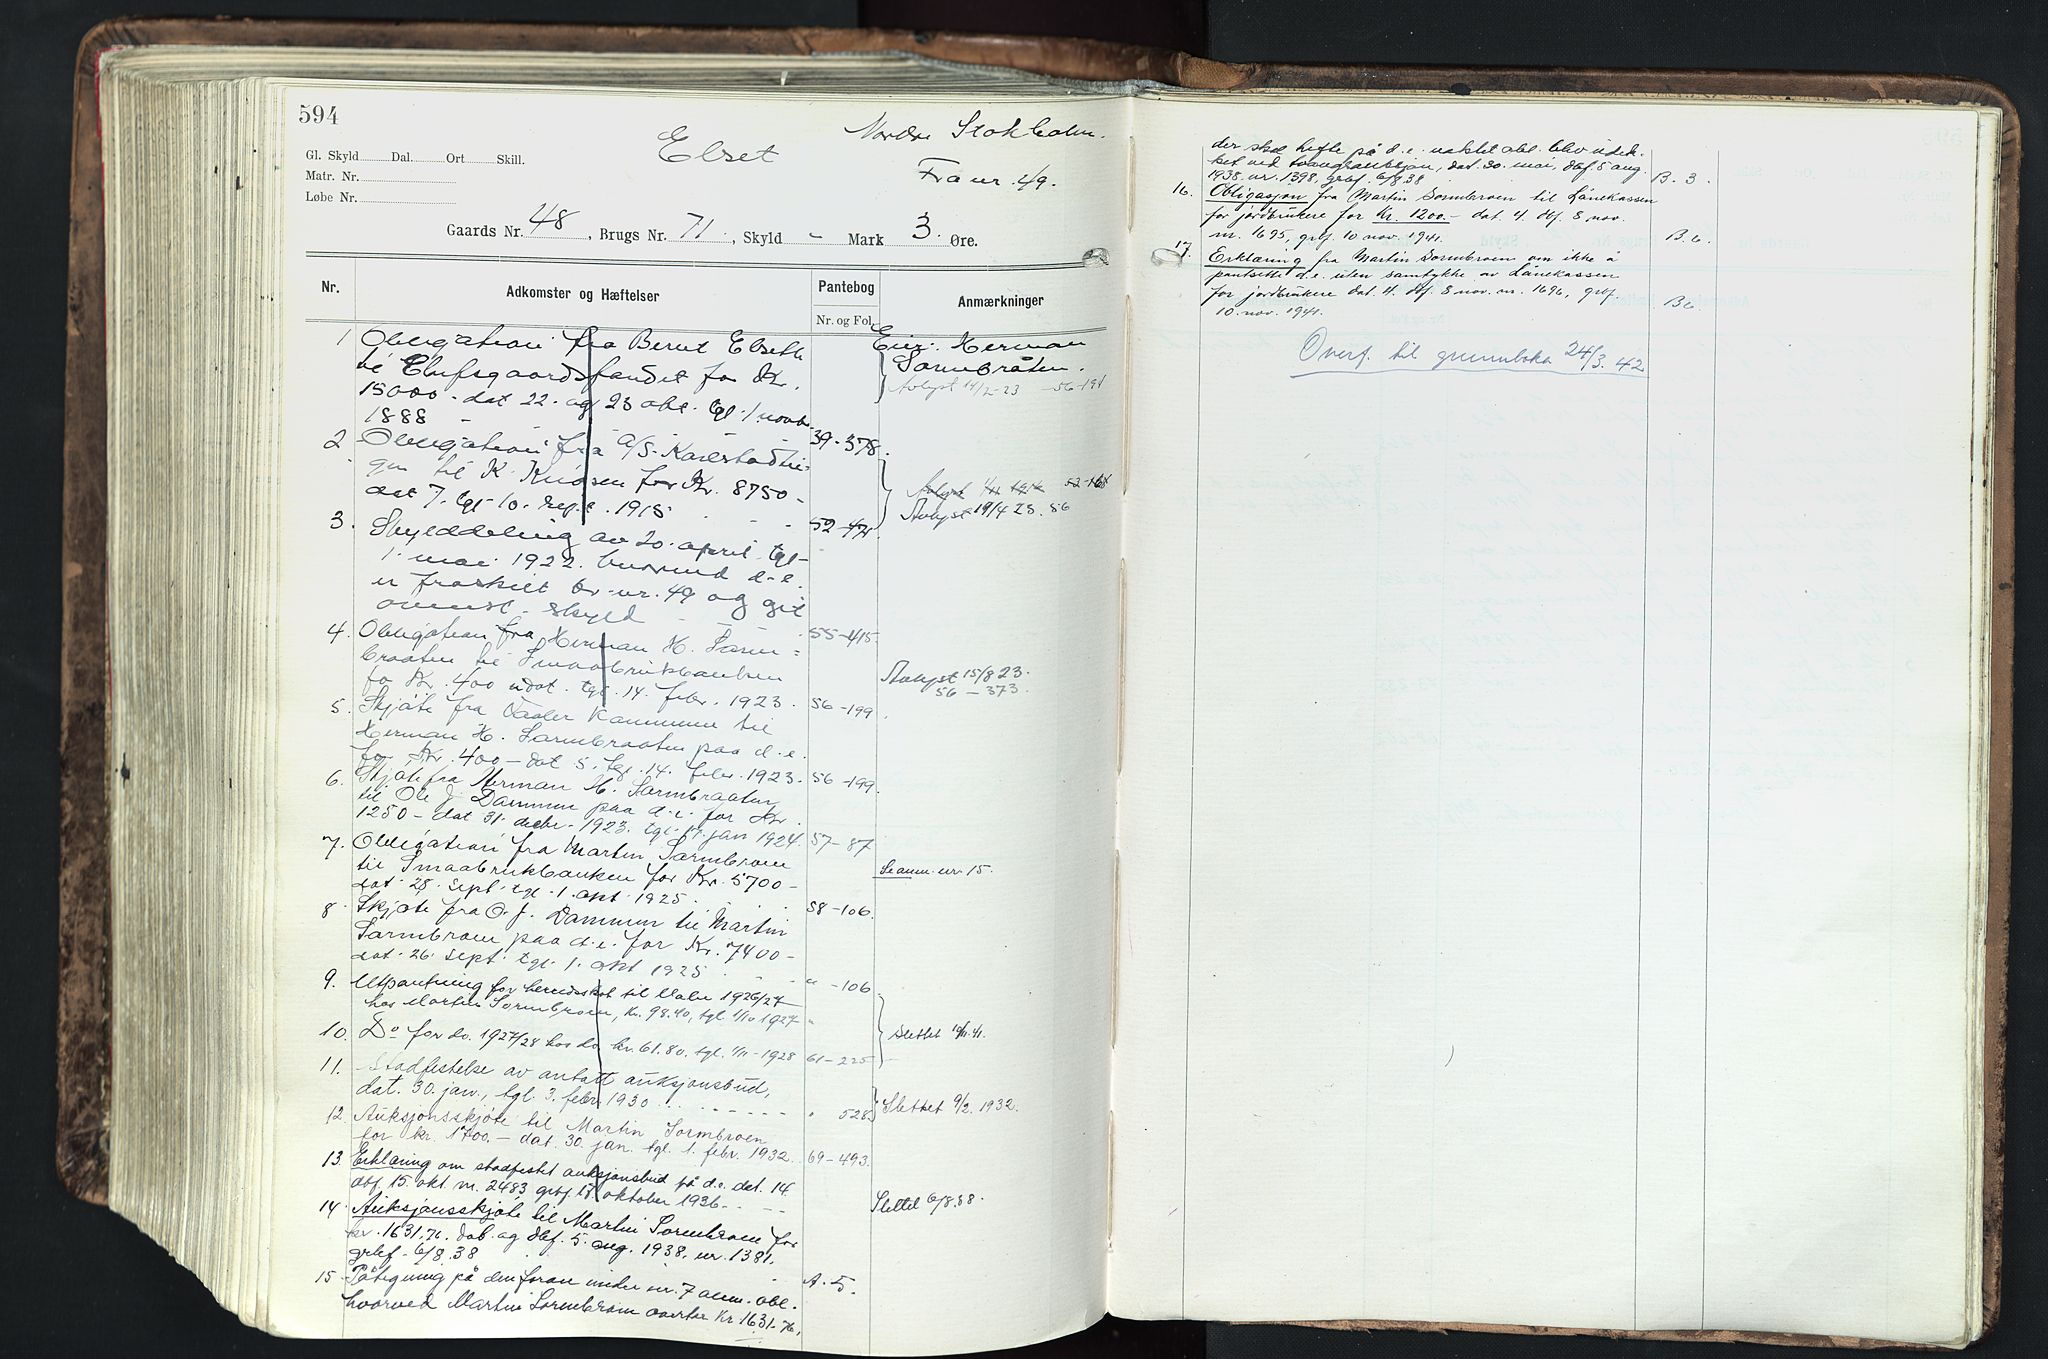 594
Nordre Stokholm.
Elset
Fra nr. 49.
Gl. Skyld Dal. Ort Skill.
Matr. Nr.
Løbe Nr.
Gaards Nr. 48, Brugs Nr. 71., Skyld - Mark 3. Øre.
Nr. Adkomster og Hæftelser Pantebog Anmærkninger
Nr. og Fol.
1 Obligation fra Bernt Elseth Eier: Herman
til Oplysgaardsfondet for Kr. Sørmbråten.
15000 - dat 22. og 23 okt. tgl. 1 novbr. Avlyst 14/2-23 - 56-191
1888 - 39-378.
2 Obligation fra A/S. Karlstad
til K. Knudsen for Kr. 8750 - Avlyst 52-168
dat 7. tgl. 10. sept. 1915 52-471 Avlyst 19/4 23. 56
3. Skylddeling av 20. april tgl.
1. mai 1922. hvorved d.e.
er fraskilt br.nr. 49 og git
ovennt. skyld - 55-415.
4. Obligation fra Herman H. Sørm=
braaten til Smaabrukbanken Avlyst 15/8 23.
for Kr. 400 udat. tgl. 14. febr. 1923. 56-199. 56-373.
5. Skjøte fra Vaaler Kommune til
Herman H. Sørmbraaten paa d.e.
for Kr. 400 - dat 5. tgl. 14. febr. 1923. 56-199.
6. Skjøte fra Herman H. Sørmbraaten
til Ole J. Dammen paa d.e. for Kr.
1250 - dat 31. decbr. 1923. tgl. 17. jan 1924. 57-87
7. Obligation fra Martin Sørmbroen
til Smaabrukbanken for Kr. 5700 - Se anm. nr. 15.
dat. 25. sept. tgl. 1. okt. 1925. 58-106.
8. Skjøte fra O. J. Dammen til Martin
Sørmbroen paa d.e. for Kr. 7400 -
dat. 26. sept. tgl. 1. okt 1925 " -106.
9. Utpantning for herredsskat til Våler 1926/27
hos Martin Sørmbroen, kr. 98.40, tgl. 1/10 1927 "
10. Do for do. 1927/28 hos do kr. 61.80. tgl. 1/11-1928 61-225 Slettet 10/11.41.
11. Stadfestelse av antatt auksjonsbud,
dat. 30. jan., tgl. 3. febr. 1930 " 528 Slettet 9/2. 1932.
12 Auksjonsskjøte til Martin Sørmbroen
for kr. 1700. - dat. 30. jan. tgl. 1. febr. 1932. 69-493.
13. Erklæring om stadfestet auksjonsbud på d.e. dat. 14.
dbf. 15. okt. nr. 2483 grbf. 15 oktober 1936. Slettet 6/8.38.
14. Auksjonsskjøte til Martin Sørmbroen for
kr. 1631.76. dat. og dbf. 5. aug. 1938. nr. 1381.
grbf. 6/8.38 A. 5.
15. Påtegning på den foran under nr. 7 anm. obl.
hvorved Martin Sørmbroen overtar Kr. 1631.76,
der skal hefte på d.e. uaktet obl. blev udek-
ket ved tvangsauksjon, dat. 30. mai, dbf. 5 aug.
1938. nr. 1398, grbf. 6/8.38 B. 3.
16. Obligasjon fra Martin Sørmbroen til Lånekassen
for jordbrukere for Kr. 1200.- dat. 4. dbf. 8 nov.
nr. 1695, grbf. 10 nov. 1941. B. 6.
17. Erklæring fra Martin Sørmbroen om ikke å
pantsette d.e. uten samtykke av Lånekassen
for jordbrukere dat. 4. dbf. 8 nov. nr. 1696, grbf.
10. nov. 1941. B 6.
Overf. til grunnboka 24/3. 42